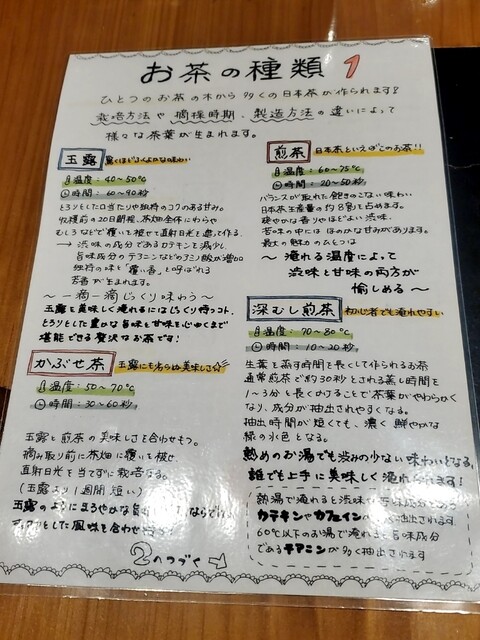 お茶の種類 1
ひとつのお茶の木から多くの日本茶が作られます!
栽培方法や摘採時期、製造方法の違いによって
様々な茶葉が生まれます。
玉露
驚くほどまろやかな味わい
温度：40〜50℃
時間：60〜90秒
とろりとした口当たりや独特のコクのある甘み。
収穫前の20日間程、茶畑全体にわらや
むしろなどで覆いを被せて直射日光を遮って作る。
→ 渋味の成分であるカテキンを減少し、
旨味成分のテアニンなどのアミノ酸が増加
独特の味と「覆い香」と呼ばれる
若香が生まれます。
〜一滴一滴じっくり味わう〜
玉露を美味しく淹れるにはじっくり待つコト。
とろりとした豊かな旨味と甘味を心ゆくまで
堪能できる贅沢なお茶です!
かぶせ茶
玉露にも劣らぬ美味しさ☆
温度：50〜70℃
時間：30〜60秒
玉露と煎茶の美味しさを合わせもつ。
摘み取り前に茶畑に覆いを被せ、
直射日光を当てずに栽培する。
(玉露より1週間短い)
玉露のようにまろやかな旨
とした風味を合わせ
2へつづく→
煎茶
日本茶といえばこのお茶!!
温度：60〜75℃
時間：20〜50秒
バランスが取れた飽きのこない味わい
日本茶生産量の約8割を占めます。
爽やかな香りやほどよい渋味、
苦味の中にはほのかな甘みがあります。
最大の魅力のひとつは
〜淹れる温度によって
渋味と甘味の両方が
愉しめる〜
深むし煎茶
初心者でも淹れやすい
温度：70〜80℃
時間：10〜20秒
生葉を蒸す時間を長くして作られるお茶
通常煎茶で約30秒とされる蒸し時間を
1〜3分と長くかけることで茶葉がやわらかく
なり、成分が抽出されやすくなる。
抽出時間が短くても、濃く鮮やかな
緑の水色となる。
熱めのお湯でも渋みの少ない味わいとなる。
誰でも上手に美味しく淹れられます!
熱湯で淹れると渋味や苦味成分である
カテキンやカフェインが多く抽出されます。
60℃以下のお湯で淹れると旨味成分
であるテアニンが多く抽出されます